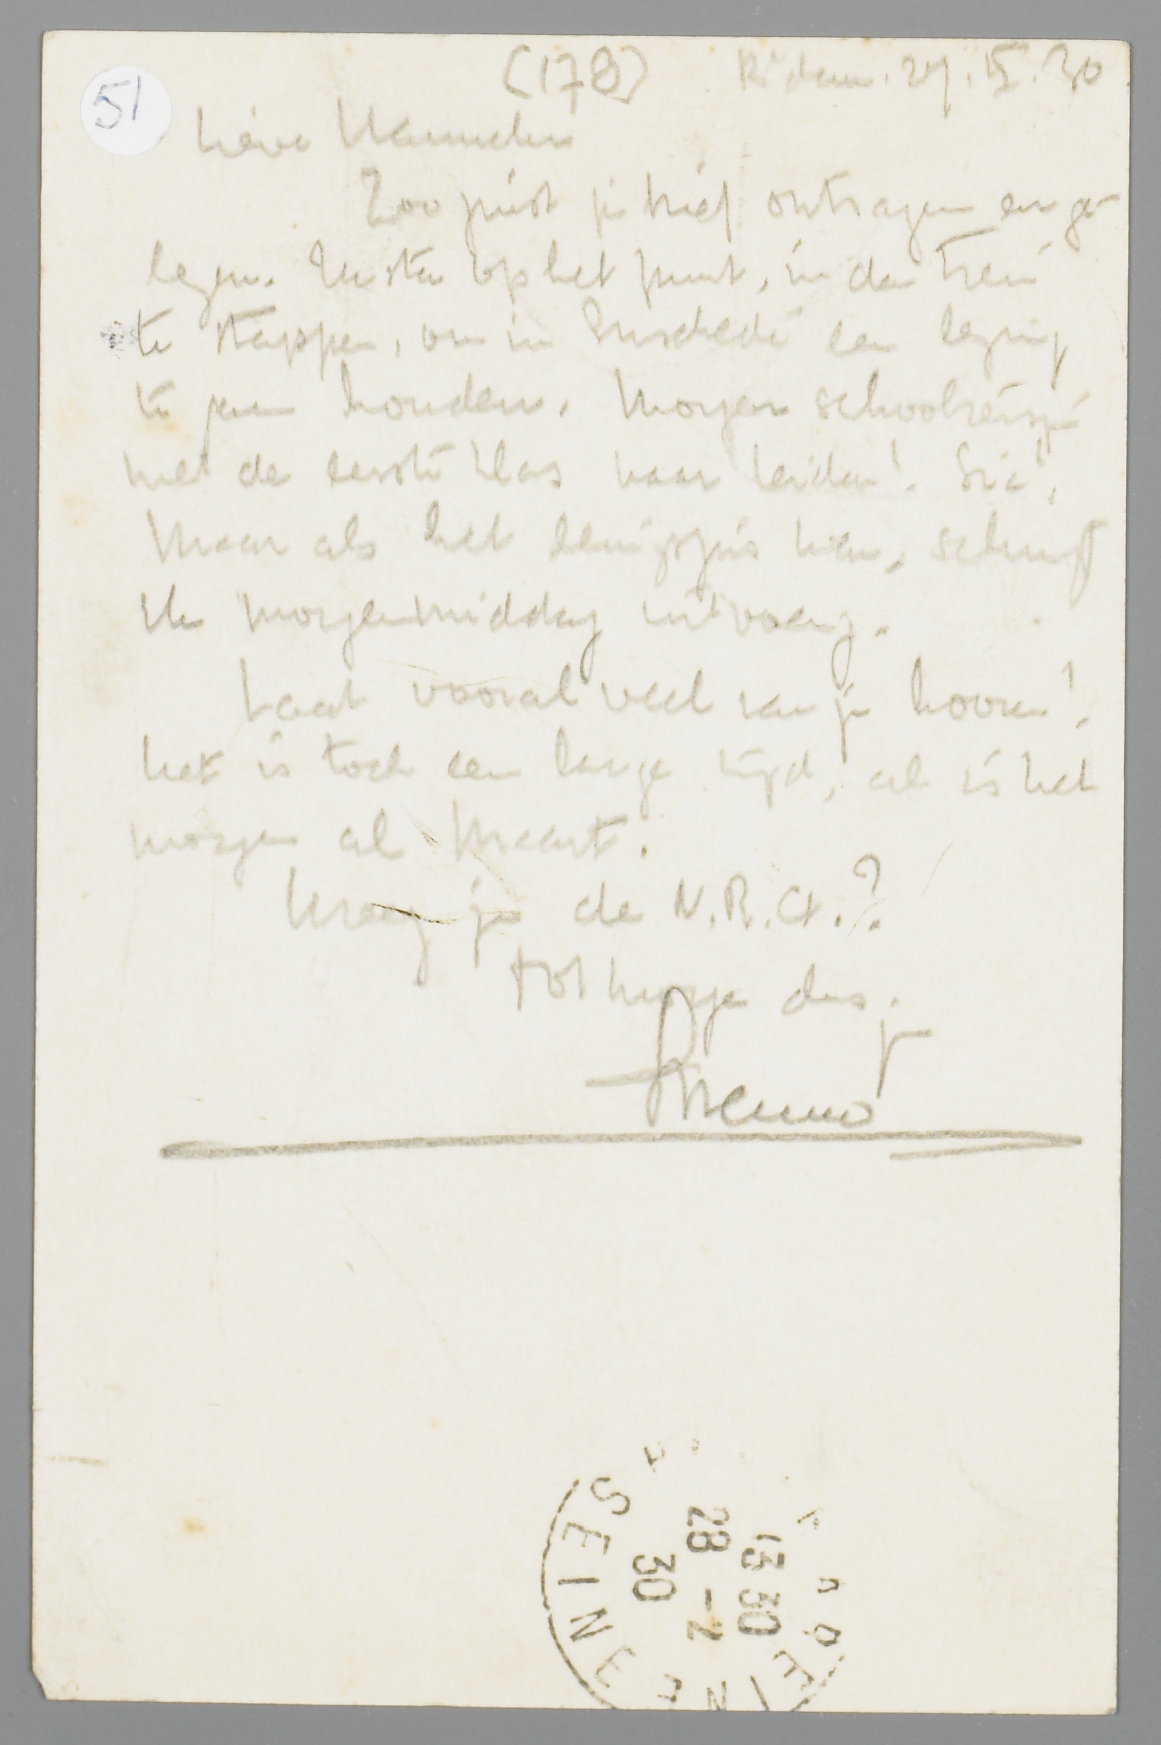 51
(178) R'dam. 27.II.30
Lieve
Zoo juist je brief ontvangen en ge-
lezen. Ik sta op het punt, in de trein
te stappen, om in Enschedé een lezing
te gaan houden. Morgen schoolreisje
met de eerste klas naar Leiden!
Maar als het eenigszins kan, schrijf
ik morgenmiddag uitvoerig.
Laat vooral veel van je hooren!
het is toch een lange tijd, al is het
morgen al Maart.
Kreeg je de N.R.Ct.?
tot morgen dus.
Menno
SEINE
13 30
28 -2
30